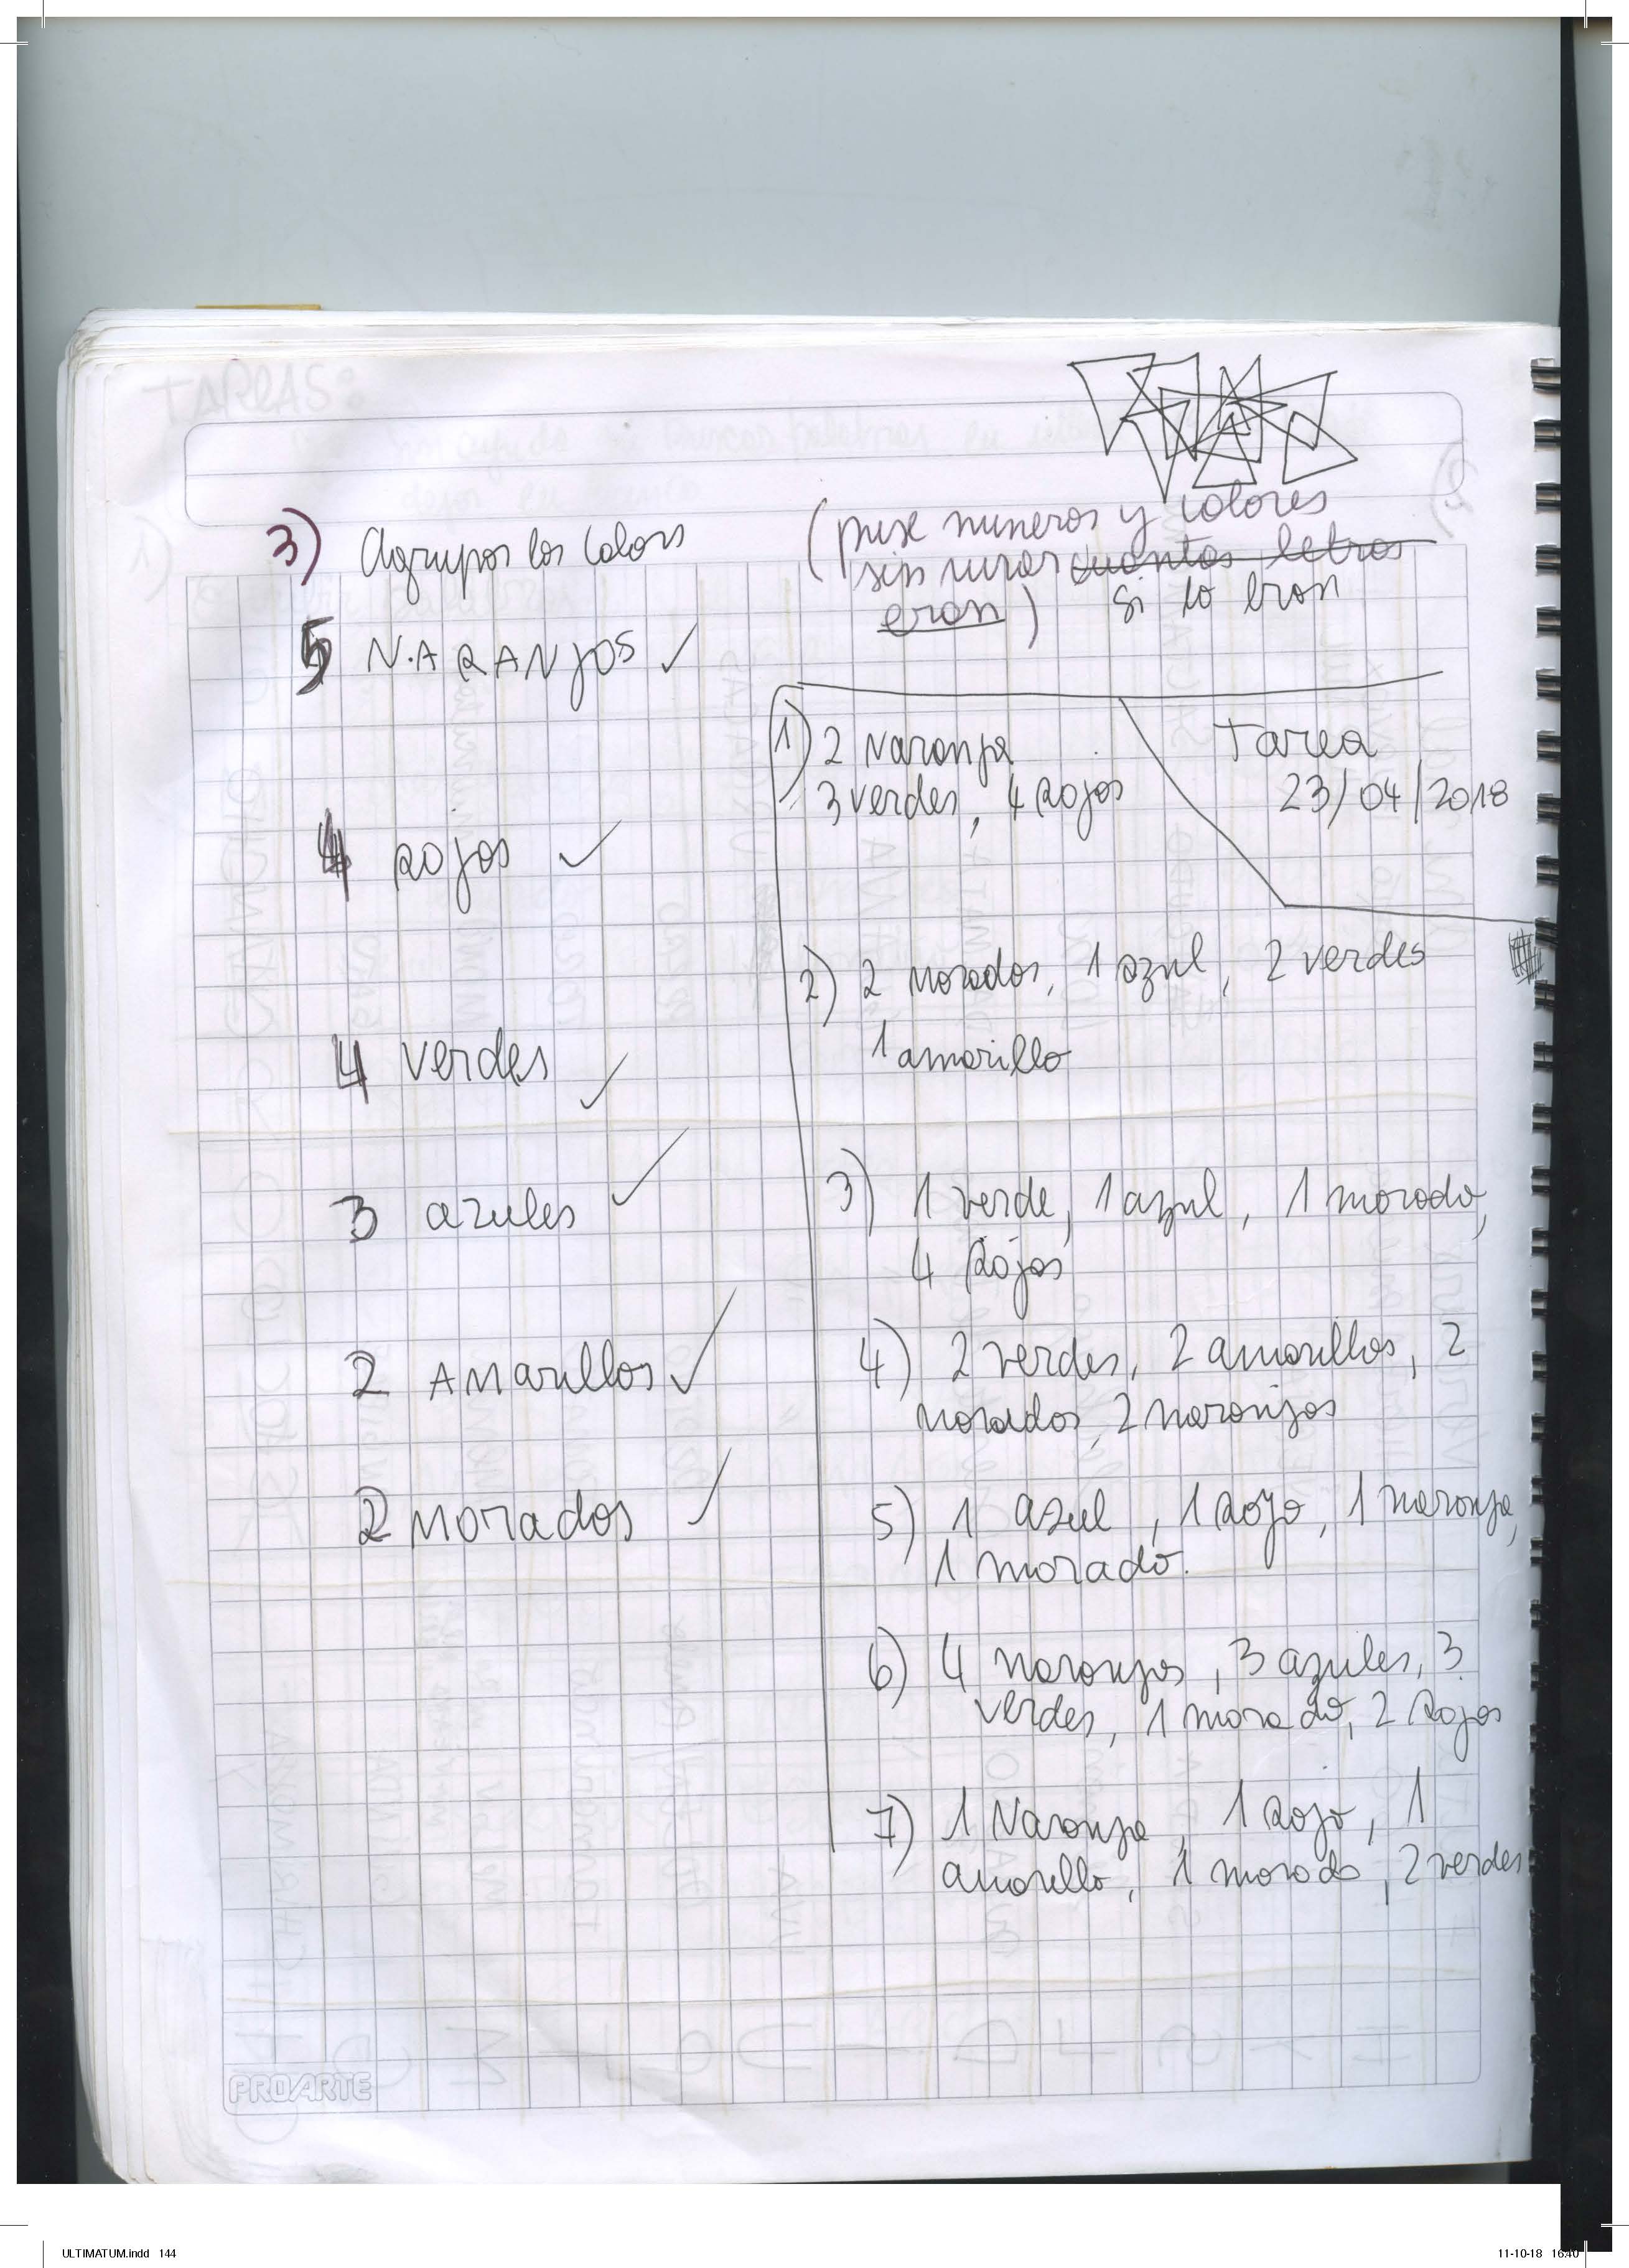 TAREAS:
3) Agrupar los colors
5 NARANJOS
4 Rojos
4 verdes
3 azules
2 AMarillos
2 Morados
(puse numeros y colores
sin mirar cuantas letras
eran) si lo eran
Tarea
23/04/2018
1) 2 Naranja
3 verdes, 4 Rojos
2) 2 morados, 1 azul, 2 verdes
1 amarillo
3) 1 verde, 1 azul, 1 morado,
4 Rojos
4) 2 verdes, 2 amarillos, 2
morados, 2 naranjos
5) 1 azul, 1 Rojo, 1 naranja,
1 morado.
6) 4 naranjos, 3 azules, 3
verdes, 1 morado, 2 Rojos
7) 1 Naranja, 1 Rojo, 1
amarillo, 1 morado, 2 verdes
PROARTE
ULTIMATUM.indd 144
11-10-18 16:40